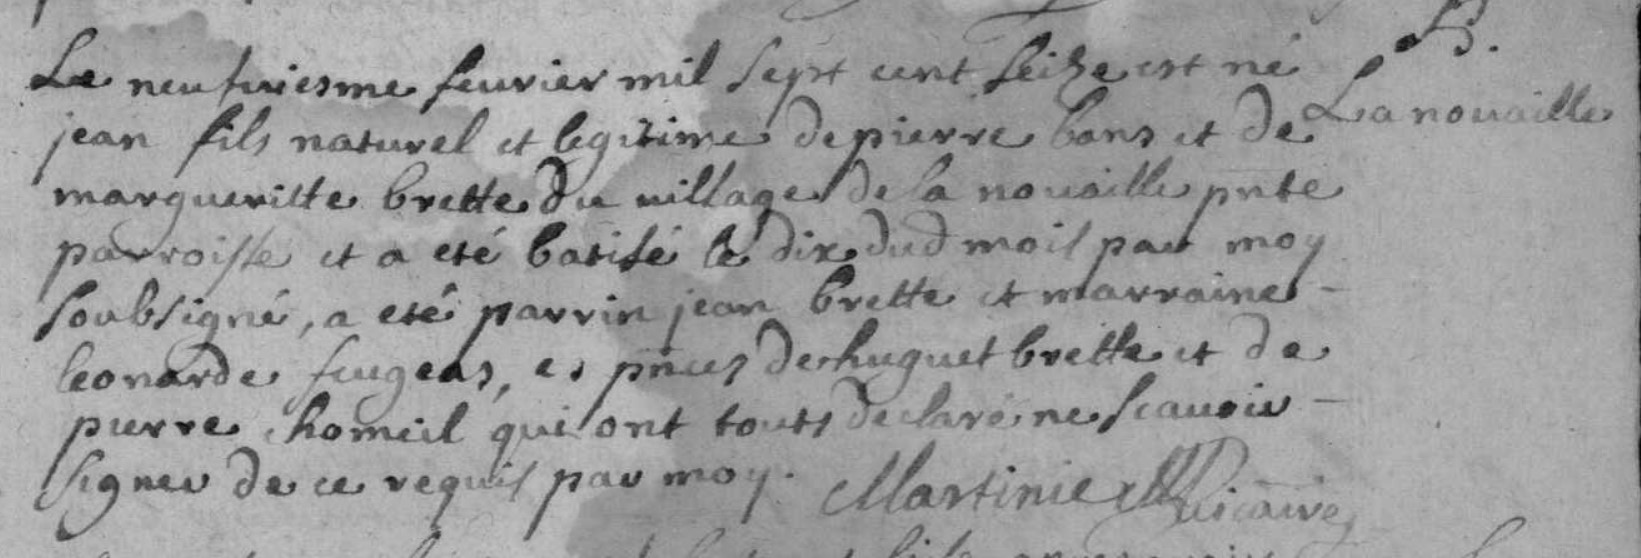 B.
La nouaille
Le neufuiesme feurier mil sept cent seize est né
jean fils naturel et legitime de pierre bons et de
margueritte brette du uillage de la nouaille pnte
parroisse et a eté batisé le dix dud mois par moy
soubsigné, a eté parrin jean brette et marraine
leonarde feugeas, es pnces de huguet brette et de
pierre chomeil qui ont touts declaré ne scauoir
signer de ce requis par moy. Martinie vicaire